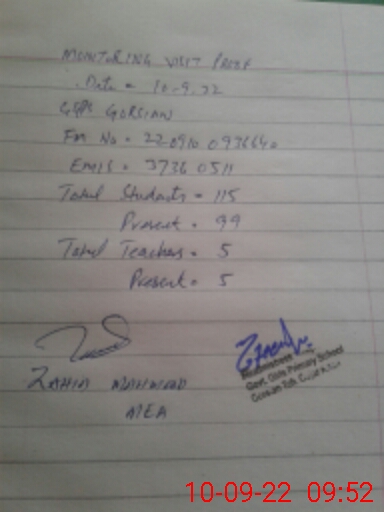 MONITORING VISIT PROOF
Date = 10-9.22
GGPS GORSIAN
Fm No = 220910 0936640
EMIS = 37360511
Total Students = 115
Present = 99
Total Teachers = 5
Present = 5
ZAHID MAHMOOD
MEA
Headmistress
Govt. Girls Primary School
Gorsian Teh.
10-09-22 09:52